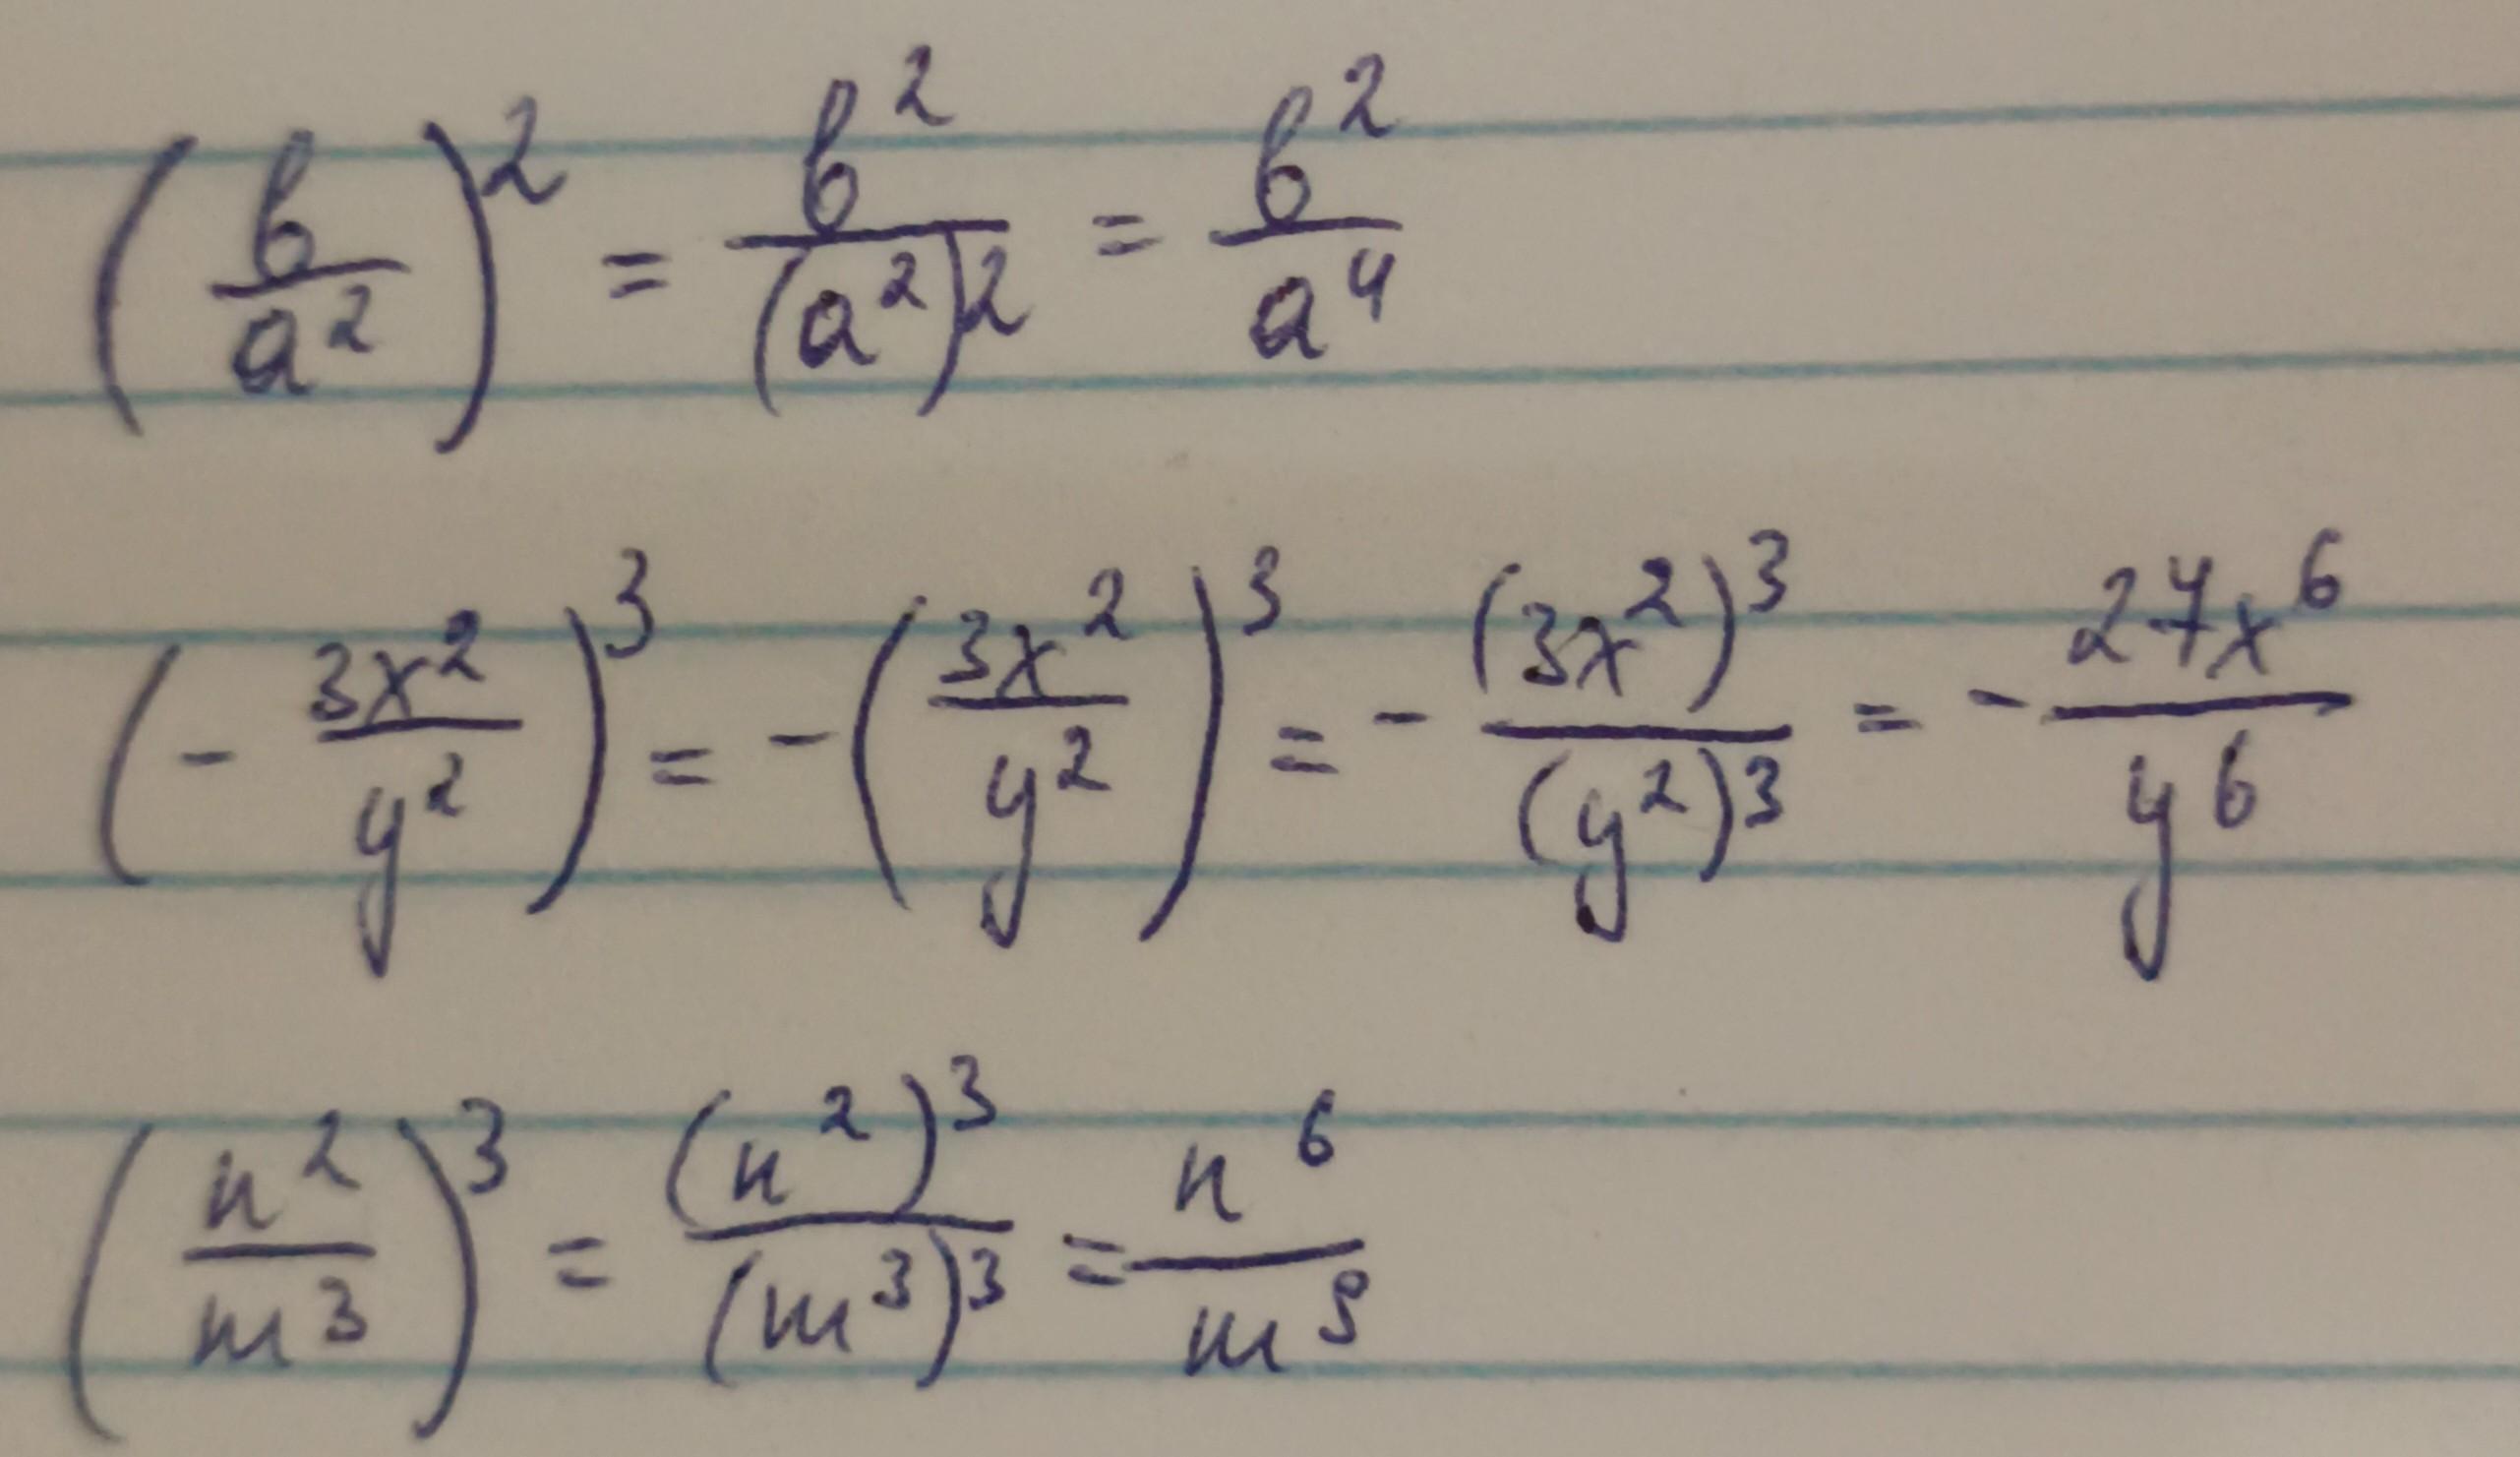 (b/a²)² = b²/(a²)² = b²/a⁴
(- 3x²/y²)³ = -(3x²/y²)³ = - (3x²)³/(y²)³ = - 27x⁶/y⁶
(n²/m³)³ = (n²)³/(m³)³ = n⁶/m⁹